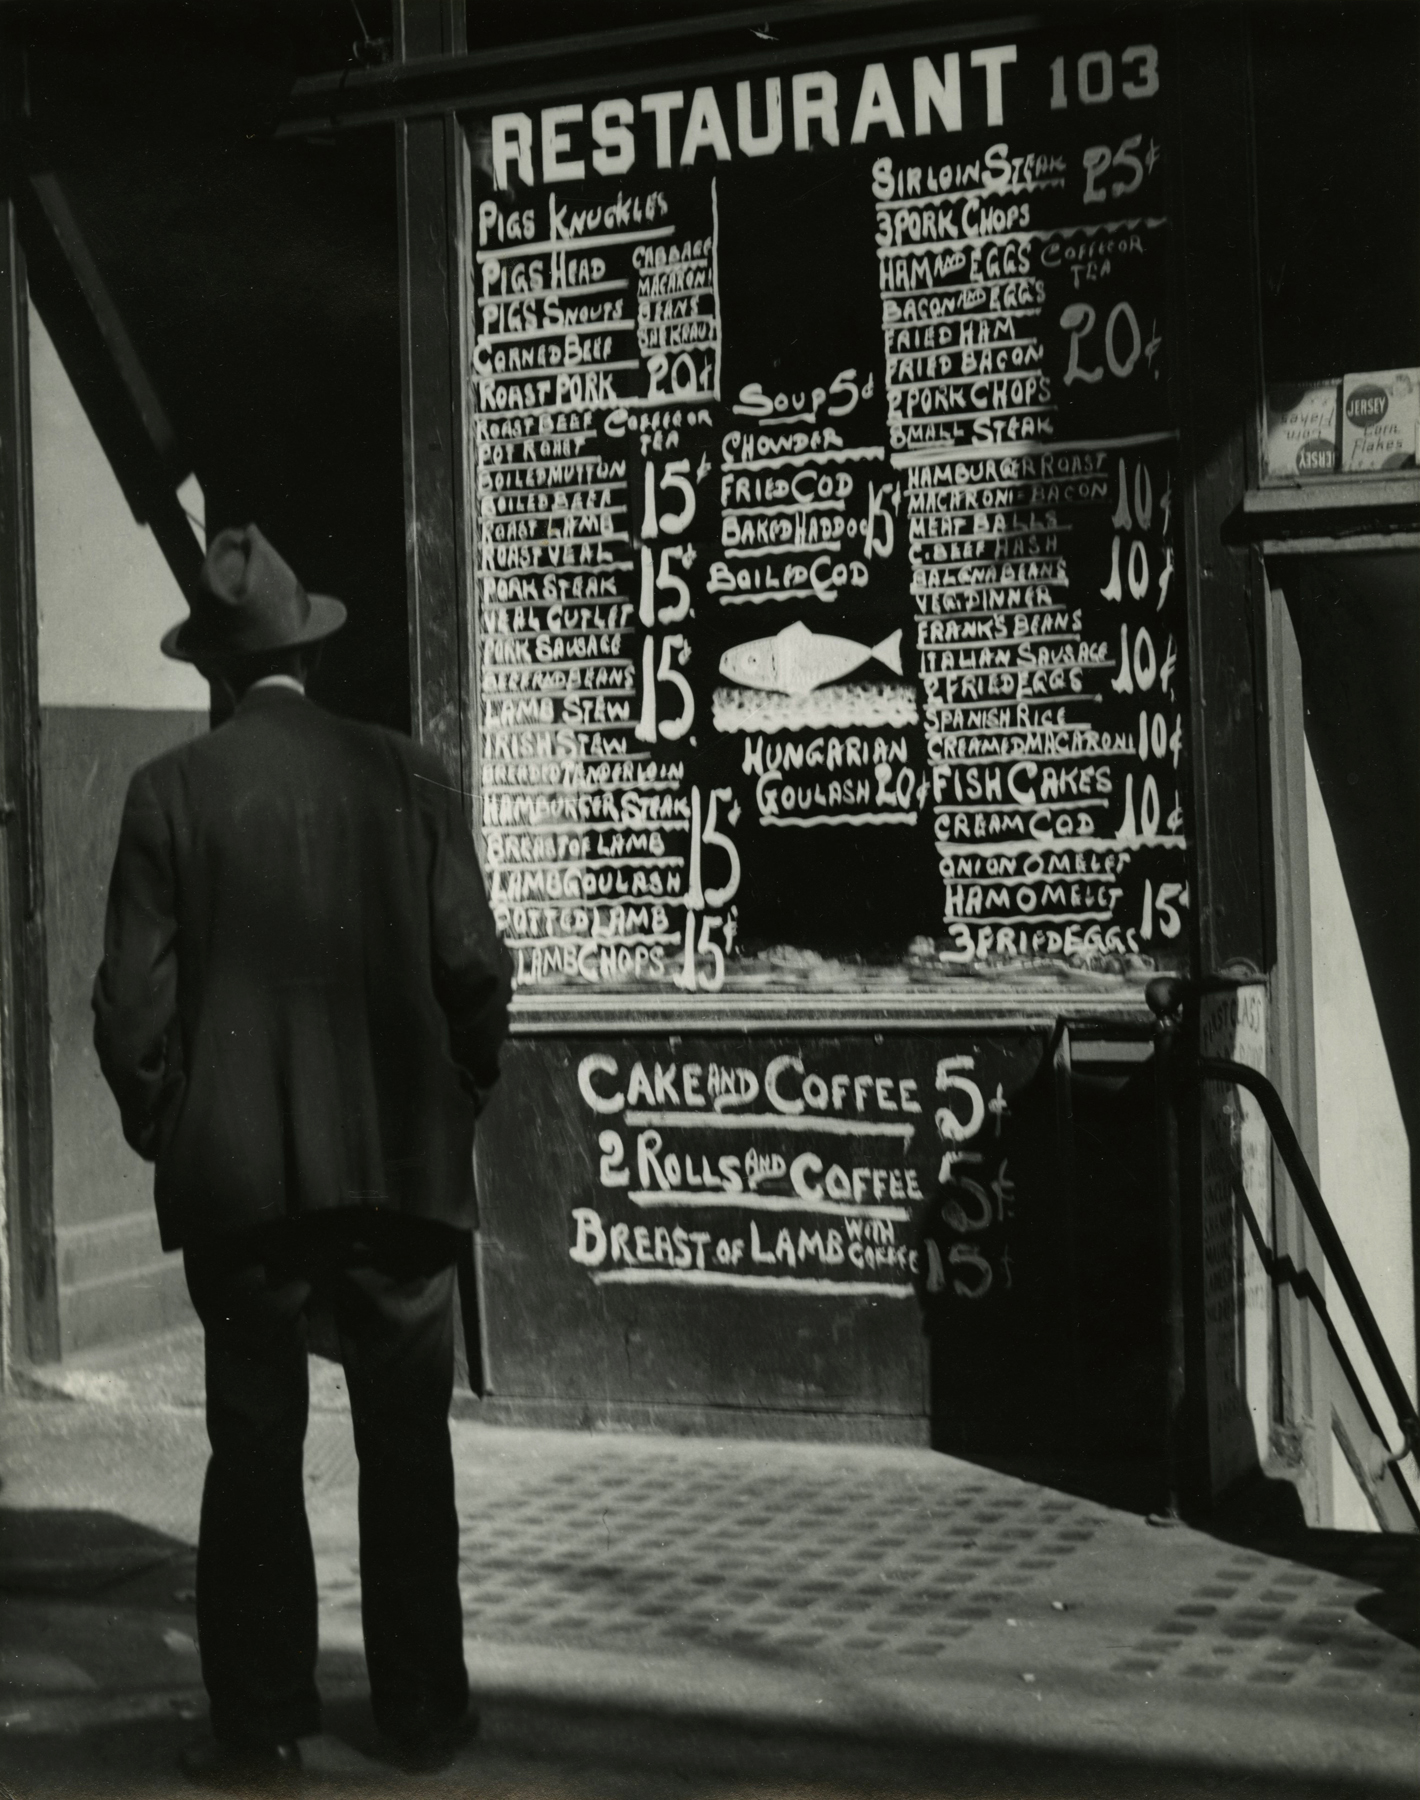 RESTAURANT 103
PIGS KNUCKLES
PIGS HEAD
PIGS SNOUTS
CORNED BEEF
ROAST PORK
CABBAGE
MACARONI
BEANS
20¢
ROAST BEEF
POT ROAST
BOILED MUTTON
BOILED BEEF
ROAST LAMB
COFFEE OR
TEA
15¢
ROAST VEAL
PORK STEAK
VEAL CUTLET
15¢
PORK SAUSAGE
BEEF AND BEANS
LAMB STEW
15¢
IRISH STEW
BREADED TENDERLOIN
HAMBURGER STEAK
BREAST OF LAMB
LAMB GOULASH
15¢
POTTED LAMB
LAMB CHOPS
15¢
SOUP 5¢
CHOWDER
FRIED COD
BAKED HADDOC
15¢
BOILED COD
HUNGARIAN
GOULASH 20¢
SIRLOIN STEAK 25¢
3 PORK CHOPS
HAM AND EGGS
BACON AND EGGS
FRIED HAM
FRIED BACON
2 PORK CHOPS
SMALL STEAK
COFFEE OR
TEA
20¢
HAMBURGER ROAST
MACARONI = BACON
MEAT BALLS
10¢
C. BEEF HASH
BALGNA BEANS
VEG. DINNER
10¢
FRANK'S BEANS
ITALIAN SAUSAGE
2 FRIED EGGS
10¢
SPANISH RICE
CREAMED MACARONI 10¢
FISH CAKES
CREAM COD
10¢
ONION OMELET
HAM OMELET
3 FRIED EGGS
15¢
CAKE AND COFFEE 5¢
2 ROLLS AND COFFEE 5¢
BREAST OF LAMB WITH COFFEE 15¢
JERSEY
Corn
Flakes
JERSEY
Corn
Flakes